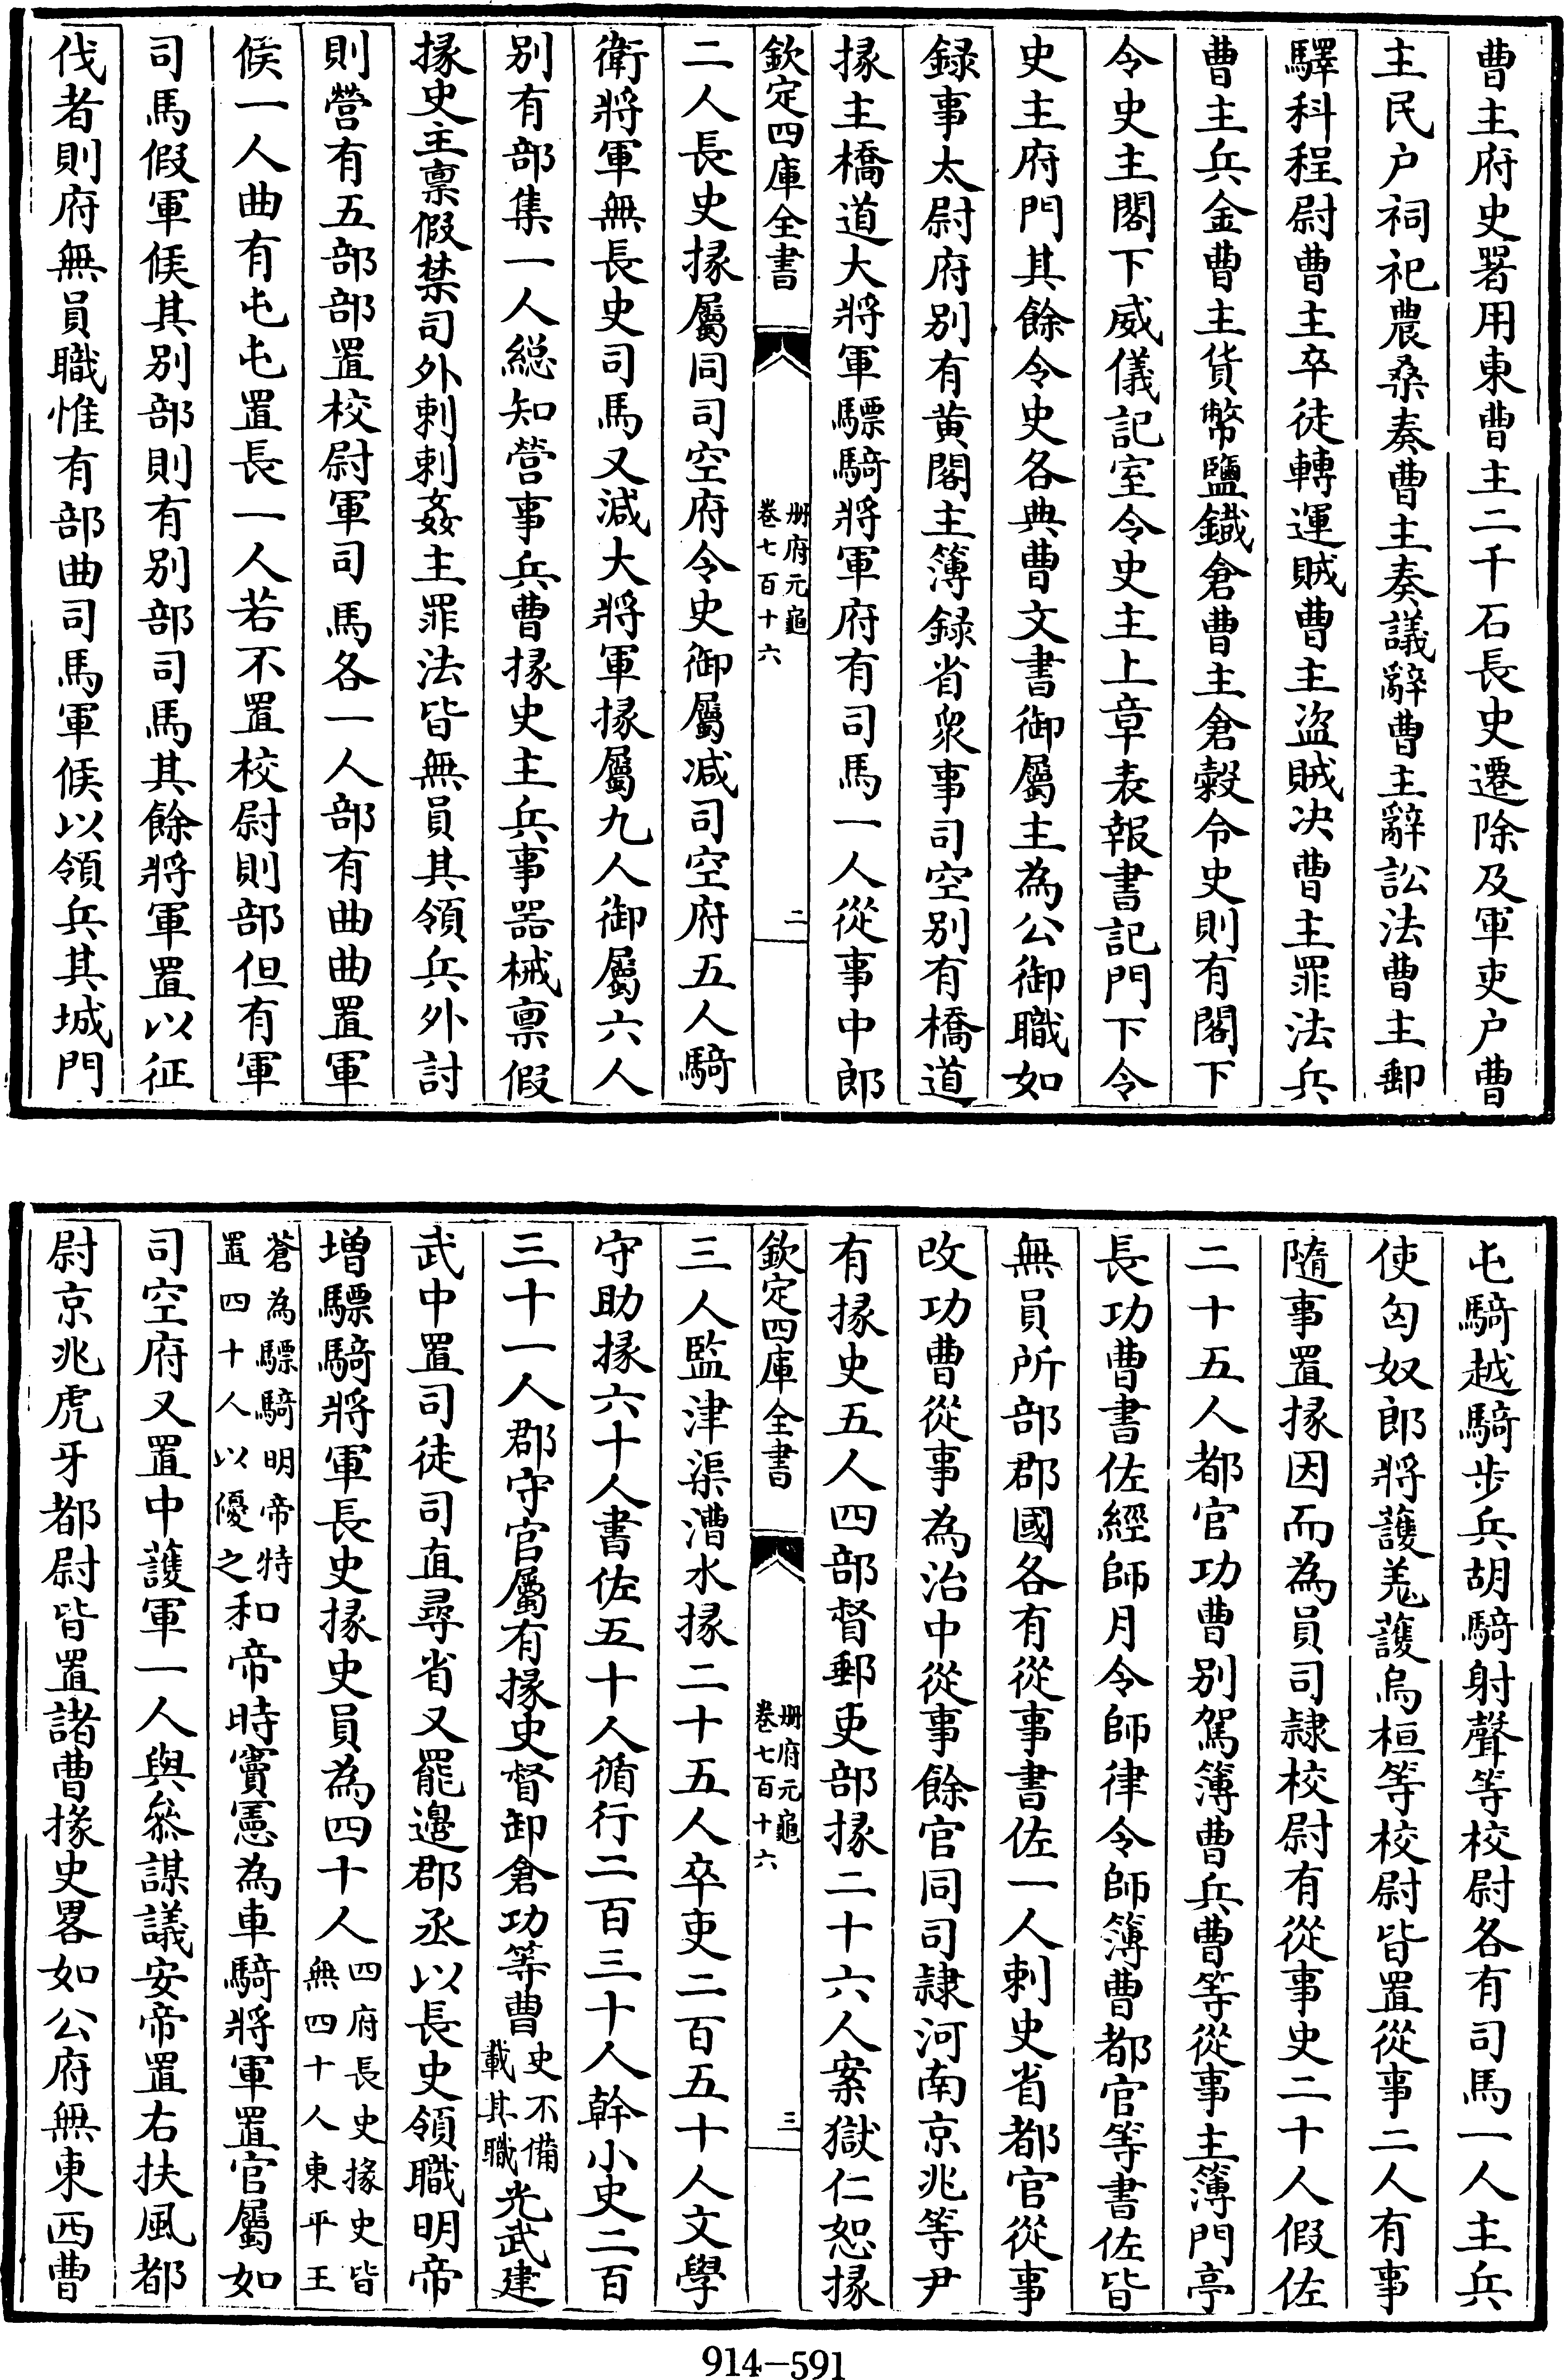 曹主府史署用東曹主二千石長史遷除及軍吏户曹
主民户祠祀農桑奏曹主奏議辭曹主辭訟法曹主郵
驛科程尉曹主卒徒轉運賊曹主盜賊决曹主罪法兵
曹主兵金曹主貨幣鹽鐡倉曹主倉穀令史則有閣下
令史主閣下威儀記室令史主上章表報書記門下令
史主府門其餘令史各典曹文書御屬主為公御職如
録事太尉府别有黄閣主簿録省衆事司空别有橋道
掾主橋道大將軍驃騎將軍府有司馬一人從事中郎
欽定四庫全書
册府元龜
卷七百十六
二
二人長史掾屬同司空府令史御屬减司空府五人騎
衛將軍無長史司馬又減大將軍掾屬九人御屬六人
别有部集一人総知營事兵曹掾史主兵事器械禀假
掾史主禀假禁司外刺刺姦主罪法皆無員其領兵外討
則營有五部部置校尉軍司馬各一人部有曲曲置軍
候一人曲有屯屯置長一人若不置校尉則部但有軍
司馬假軍候其别部則有别部司馬其餘將軍置以征
伐者則府無員職惟有部曲司馬軍候以領兵其城門
屯騎越騎步兵胡騎射聲等校尉各有司馬一人主兵
使匈奴郎將護羌護烏桓等校尉皆置從事二人有事
隨事置掾因而為員司隷校尉有從事史二十人假佐
二十五人都官功曹别駕簿曹兵曹等從事主簿門亭
長功曹書佐經師月令師律令師簿曹都官等書佐皆
無員所部郡國各有從事書佐一人刺史省都官從事
改功曹從事為治中從事餘官同司隷河南京兆等尹
有掾史五人四部督郵吏部掾二十六人案獄仁恕掾
欽定四庫全書
册府元龜
卷七百十六
三
三人監津渠漕水掾二十五人卒吏二百五十人文學
守助掾六十人書佐五十人循行二百三十人幹小史二百
三十一人郡守官屬有掾史督卸倉功等曹史不備載其職光武建
武中置司徒司直尋省又罷邊郡丞以長史領職明帝
増驃騎將軍長史掾史員為四十人四府長史掾史皆無四十人東平王
蒼為驃騎明帝特置四十人以優之和帝時竇憲為車騎將軍置官屬如
司空府又置中護軍一人與叅謀議安帝置右扶風都
尉京兆虎牙都尉皆置諸曹掾史畧如公府無東西曹
914-591